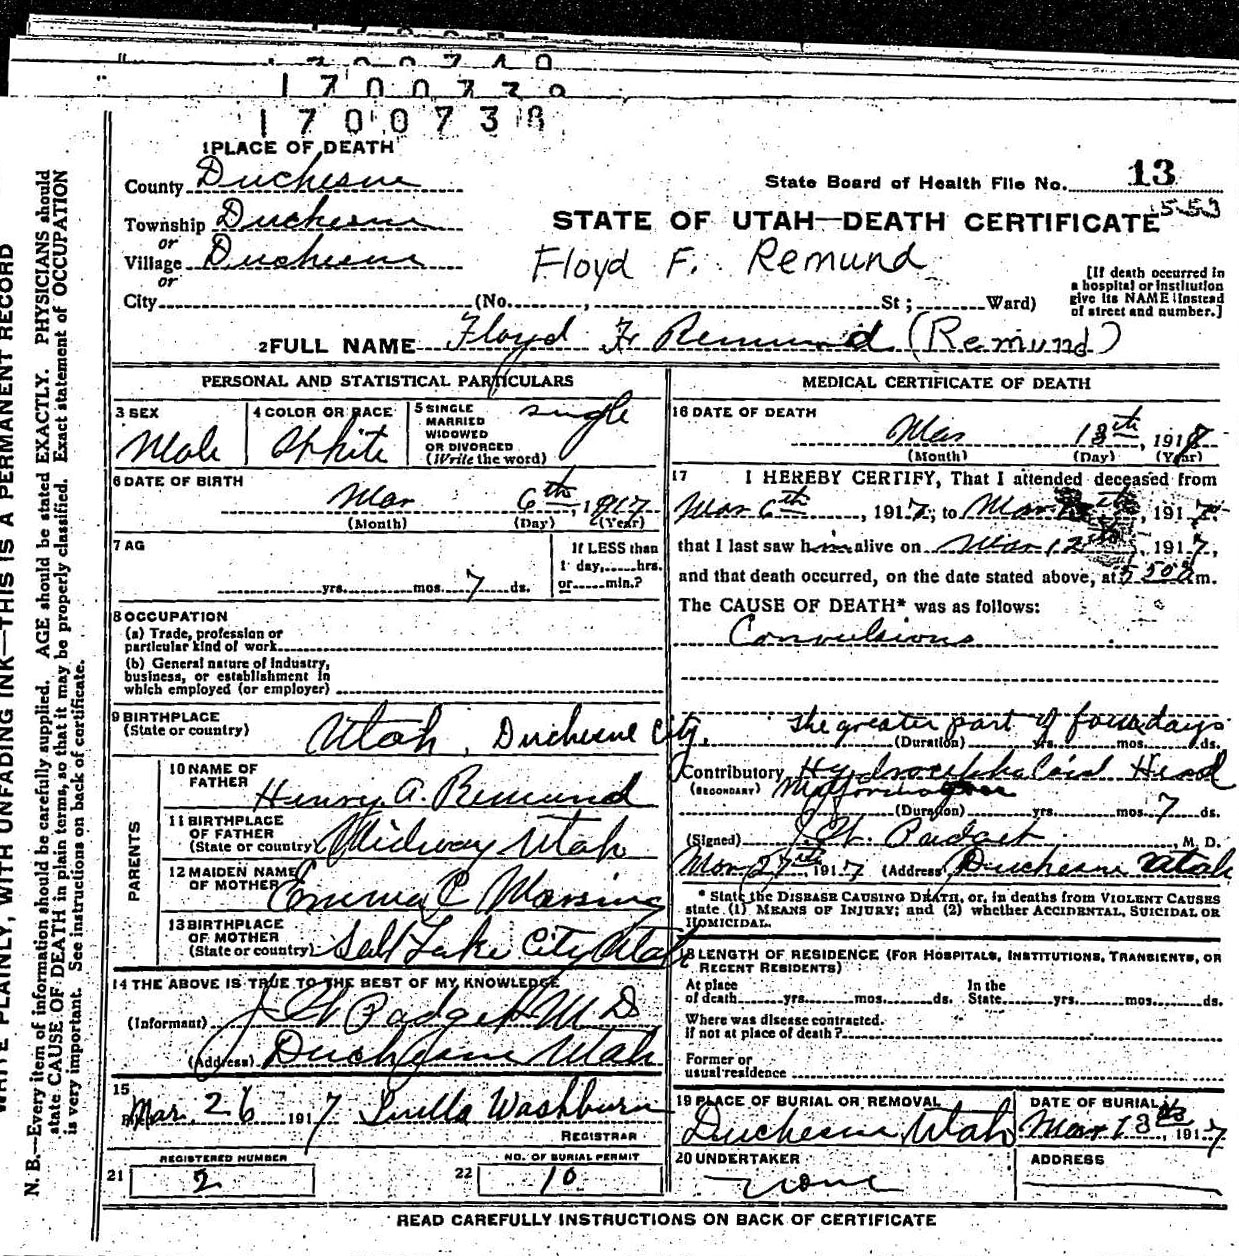 1700739
1700738
1 PLACE OF DEATH
County Duchesne
State Board of Health File No. 13
553
Township Duchesne
STATE OF UTAH—DEATH CERTIFICATE
or
Village Duchesne
Floyd F. Remund
or
[If death occurred in
a hospital or institution
give its NAME instead
of street and number.]
City (No. , St ; Ward)
2 FULL NAME Floyd F. Remund (Remund)
PERSONAL AND STATISTICAL PARTICULARS
3 SEX
Male
4 COLOR OR RACE
White
5 SINGLE
MARRIED
WIDOWED
OR DIVORCED
(Write the word)
single
6 DATE OF BIRTH
Mar 6th, 1917
(Month) (Day) (Year)
7 AG
yrs. mos. 7 ds.
If LESS than
1 day, hrs.
or min.?
8 OCCUPATION
(a) Trade, profession or
particular kind of work
(b) General nature of industry,
business, or establishment in
which employed (or employer)
9 BIRTHPLACE
(State or country) Utah, Duchesne City.
PARENTS
10 NAME OF
FATHER Henry A. Remund
11 BIRTHPLACE
OF FATHER
(State or country) Midway Utah
12 MAIDEN NAME
OF MOTHER Emma C Marsing
13 BIRTHPLACE
OF MOTHER
(State or country) Salt Lake City Utah
14 THE ABOVE IS TRUE TO THE BEST OF MY KNOWLEDGE
(Informant) J W Padget M D
(Address) Duchesne Utah
15
Mar. 26 1917 Luella Washburn
REGISTRAR
REGISTERED NUMBER
21 2
NO. OF BURIAL PERMIT
22 10
MEDICAL CERTIFICATE OF DEATH
16 DATE OF DEATH
Mar 13th, 1917
(Month) (Day) (Year)
17 I HEREBY CERTIFY, That I attended deceased from
Mar 6th, 1917, to Mar th, 1917,
that I last saw him alive on Mar 12th, 1917,
and that death occurred, on the date stated above, at 5 50 a m.
The CAUSE OF DEATH* was as follows:
Convulsions
The greater part of four days
(Duration) yrs. mos. ds.
Contributory Hydrocephaloid Head
(SECONDARY) Malformation
(Duration) yrs. mos. 7 ds.
(Signed) J. W. Padget M. D.
Mar 27th, 1917 (Address) Duchesne Utah
* State the DISEASE CAUSING DEATH, or, in deaths from VIOLENT CAUSES
state (1) MEANS OF INJURY; and (2) whether ACCIDENTAL, SUICIDAL OR
HOMICIDAL.
18 LENGTH OF RESIDENCE (FOR HOSPITALS, INSTITUTIONS, TRANSIENTS, OR
RECENT RESIDENTS)
At place
of death yrs. mos. ds.
In the
State yrs. mos. ds.
Where was disease contracted.
if not at place of death?
Former or
usual residence
19 PLACE OF BURIAL OR REMOVAL
Duchesne, Utah
DATE OF BURIAL
Mar 13th, 1917
20 UNDERTAKER
none
ADDRESS
READ CAREFULLY INSTRUCTIONS ON BACK OF CERTIFICATE
WRITE PLAINLY, WITH UNFADING INK—THIS IS A PERMANENT RECORD
N. B.—Every item of information should be carefully supplied. AGE should be stated EXACTLY. PHYSICIANS should
state CAUSE OF DEATH in plain terms, so that it may be properly classified. Exact statement of OCCUPATION
is very important. See instructions on back of certificate.